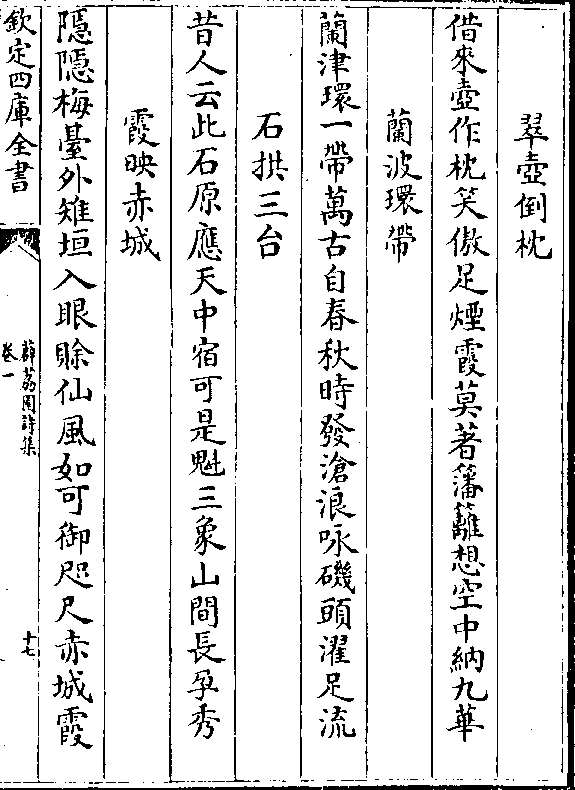 翠壺倒枕
借來壺作枕笑傲足煙霞莫著籓籬想空中納九華
蘭波環帶
蘭津環一帶萬古自春秋時發滄浪咏磯頭濯足流
石拱三台
昔人云此石原應天中宿可是魁三象山間長孕秀
霞映赤城
隱隱梅臺外雉垣入眼賒仙風如可御咫尺赤城霞
欽定四庫全書
薜荔園詩集
卷一
十七